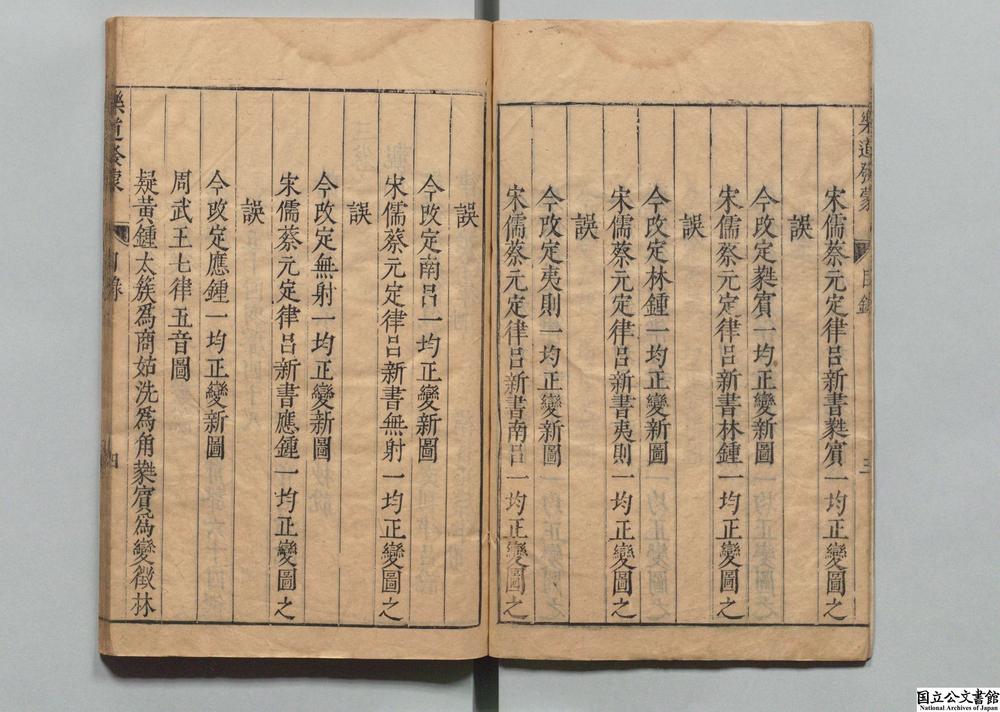 樂道發蒙
目錄
三
宋儒蔡元定律呂新書蕤賓一均正變圖之
誤
今改定蕤賓一均正變新圖
宋儒蔡元定律呂新書林鍾一均正變圖之
誤
今改定林鍾一均正變新圖
宋儒蔡元定律呂新書夷則一均正變圖之
誤
今改定夷則一均正變新圖
宋儒蔡元定律呂新書南呂一均正變圖之
誤
今改定南呂一均正變新圖
宋儒蔡元定律呂新書無射一均正變圖之
誤
今改定無射一均正變新圖
宋儒蔡元定律呂新書應鍾一均正變圖之
誤
今改定應鍾一均正變新圖
周武王七律五音圖
疑黃鍾太簇爲商姑洗爲角蕤賓爲變徵林
樂道發蒙
目錄
四
国立公文書館
National Archives of Japan